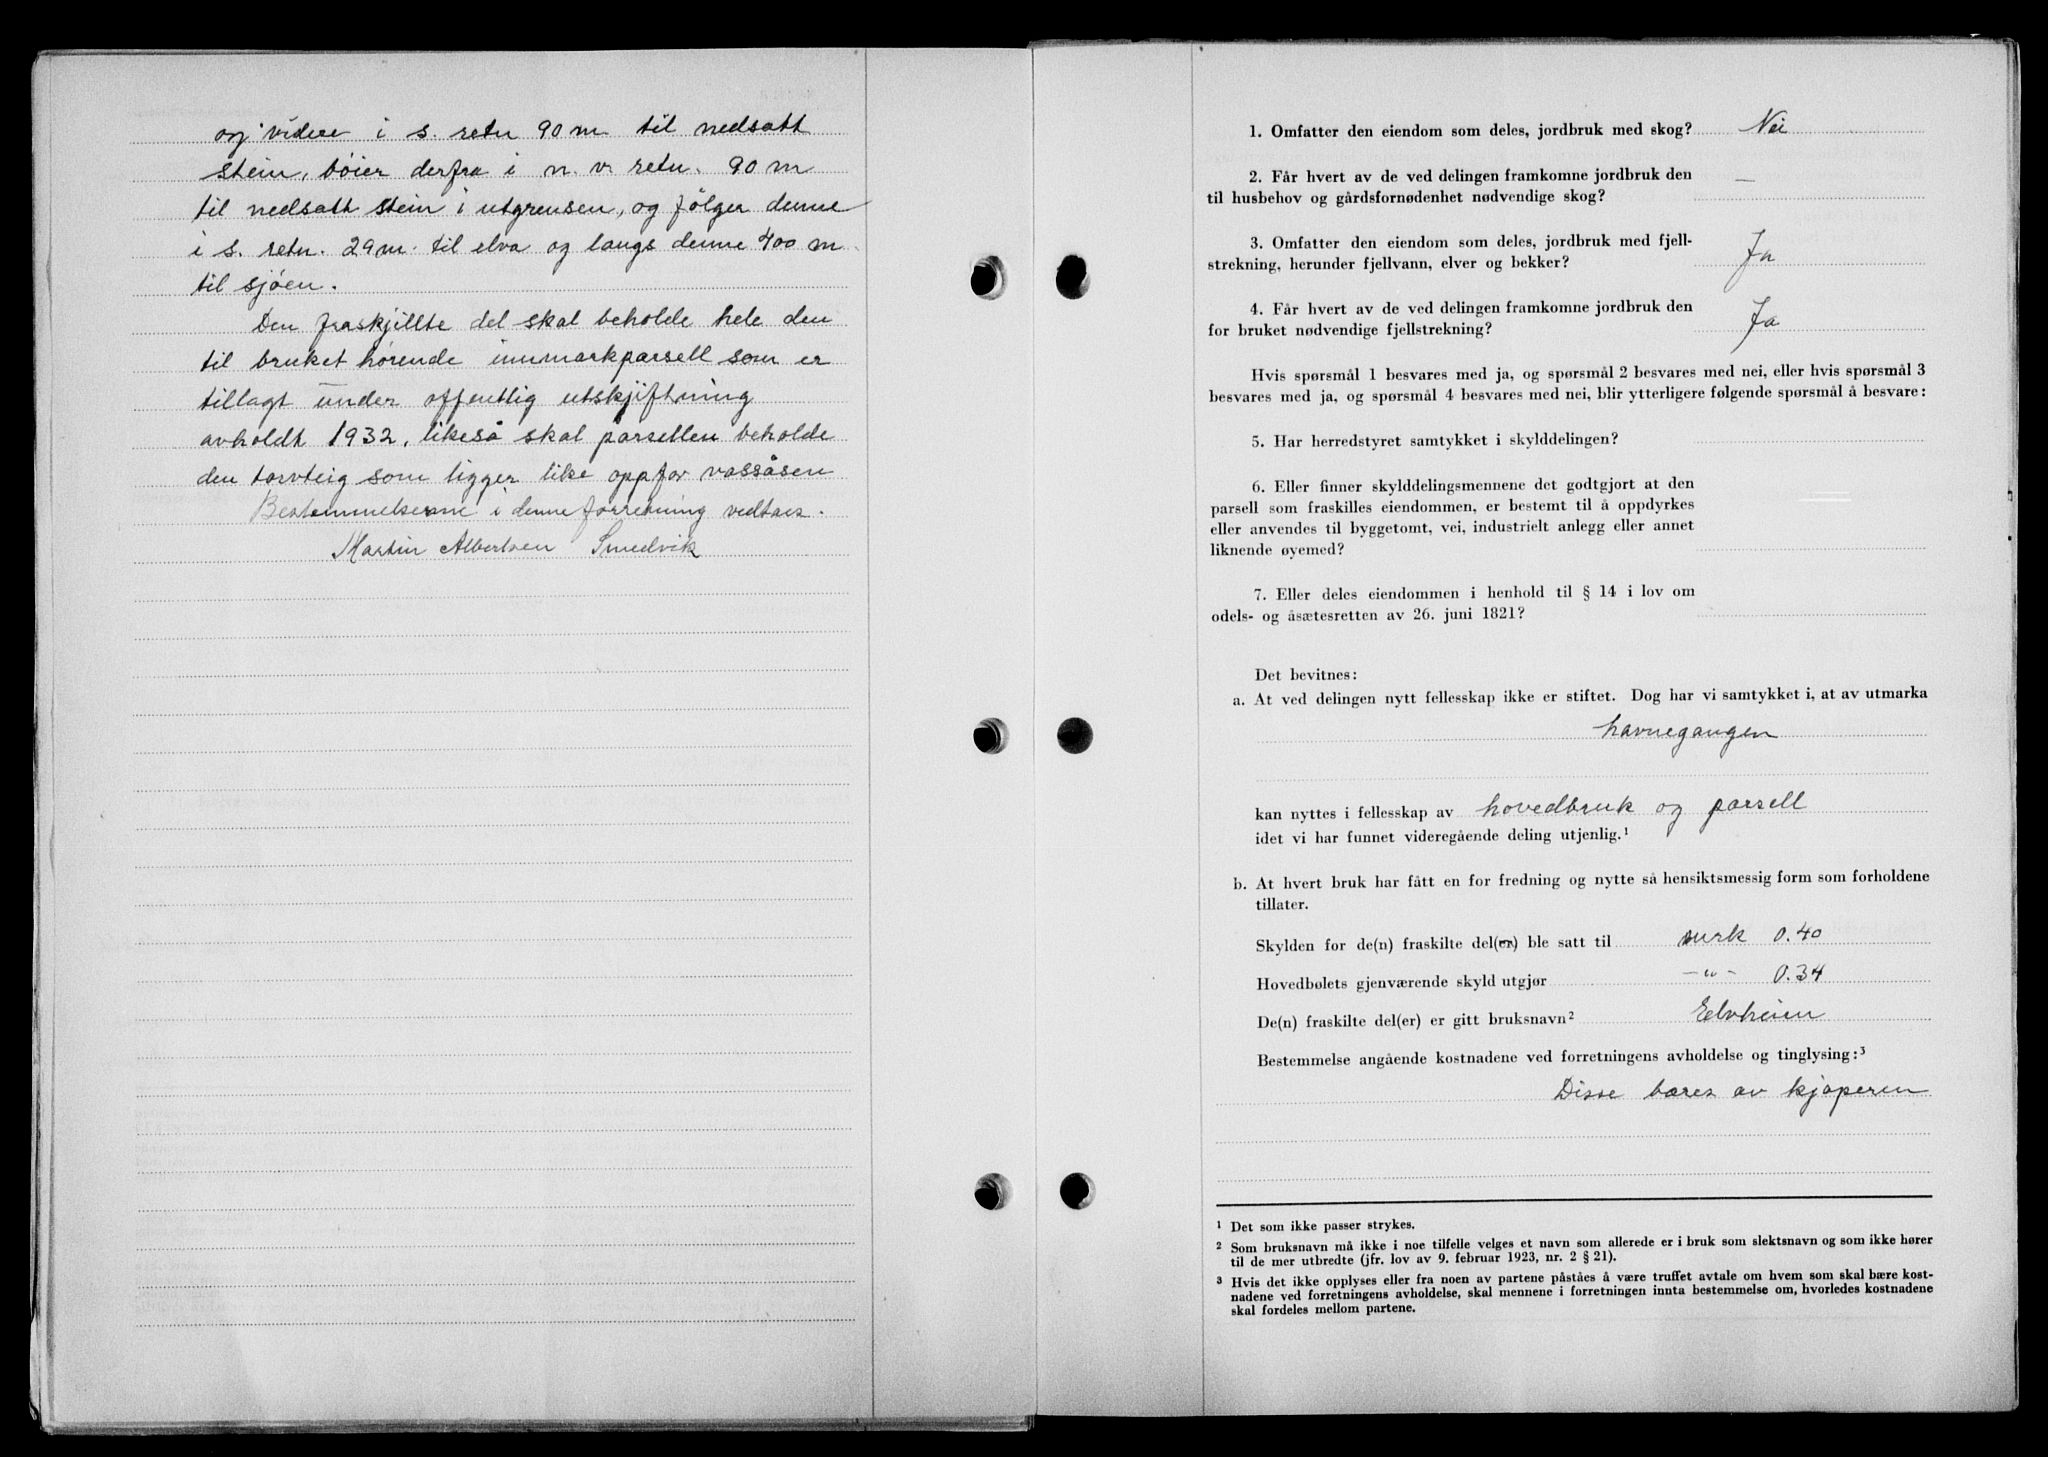 og videre i s. retn 90 m til nedsatt
stein, bøier derfra i n. v. retn. 90 m
til nedsatt stein i utgrensen, og følger denne
i s. retn. 29 m. til elva og langs denne 400 m.
til sjøen.
Den fraskjillte del skal beholde hele den
til bruket hørende innmarkparsell som er
tillagt under offentlig utskjiftning
avholdt 1932, likeså skal parsellen beholde
den torvteig som ligger like oppfor vassåsen
Bestemmelserne i denne forretning vedtaes.
Martin Albertsen Smedvik
1. Omfatter den eiendom som deles, jordbruk med skog? Nei
2. Får hvert av de ved delingen framkomne jordbruk den
til husbehov og gårdsfornødenhet nødvendige skog? —
3. Omfatter den eiendom som deles, jordbruk med fjell-
strekning, herunder fjellvann, elver og bekker? Ja
4. Får hvert av de ved delingen framkomne jordbruk den
for bruket nødvendige fjellstrekning? Ja
Hvis spørsmål 1 besvares med ja, og spørsmål 2 besvares med nei, eller hvis spørsmål 3
besvares med ja, og spørsmål 4 besvares med nei, blir ytterligere følgende spørsmål å besvare:
5. Har herredstyret samtykket i skylddelingen?
6. Eller finner skylddelingsmennene det godtgjort at den
parsell som fraskilles eiendommen, er bestemt til å oppdyrkes
eller anvendes til byggetomt, vei, industrielt anlegg eller annet
liknende øyemed?
7. Eller deles eiendommen i henhold til § 14 i lov om
odels- og åsætesretten av 26. juni 1821?
Det bevitnes:
a. At ved delingen nytt fellesskap ikke er stiftet. Dog har vi samtykket i, at av utmarka
havnegangen
kan nyttes i fellesskap av hovedbruk og parsell
idet vi har funnet videregående deling utjenlig.¹
b. At hvert bruk har fått en for fredning og nytte så hensiktsmessig form som forholdene
tillater.
Skylden for de(n) fraskilte del(er) ble satt til murk 0.40
Hovedbølets gjenværende skyld utgjør -"- 0.34
De(n) fraskilte del(er) er gitt bruksnavn² Elvheim
Bestemmelse angående kostnadene ved forretningens avholdelse og tinglysing:³
Disse bæres av kjøperen
¹ Det som ikke passer strykes.
² Som bruksnavn må ikke i noe tilfelle velges et navn som allerede er i bruk som slektsnavn og som ikke hører
til de mer utbredte (jfr. lov av 9. februar 1923, nr. 2 § 21).
³ Hvis det ikke opplyses eller fra noen av partene påståes å være truffet avtale om hvem som skal bære kost-
nadene ved forretningens avholdelse, skal mennene i forretningen innta bestemmelse om, hvorledes kostnadene
skal fordeles mellom partene.